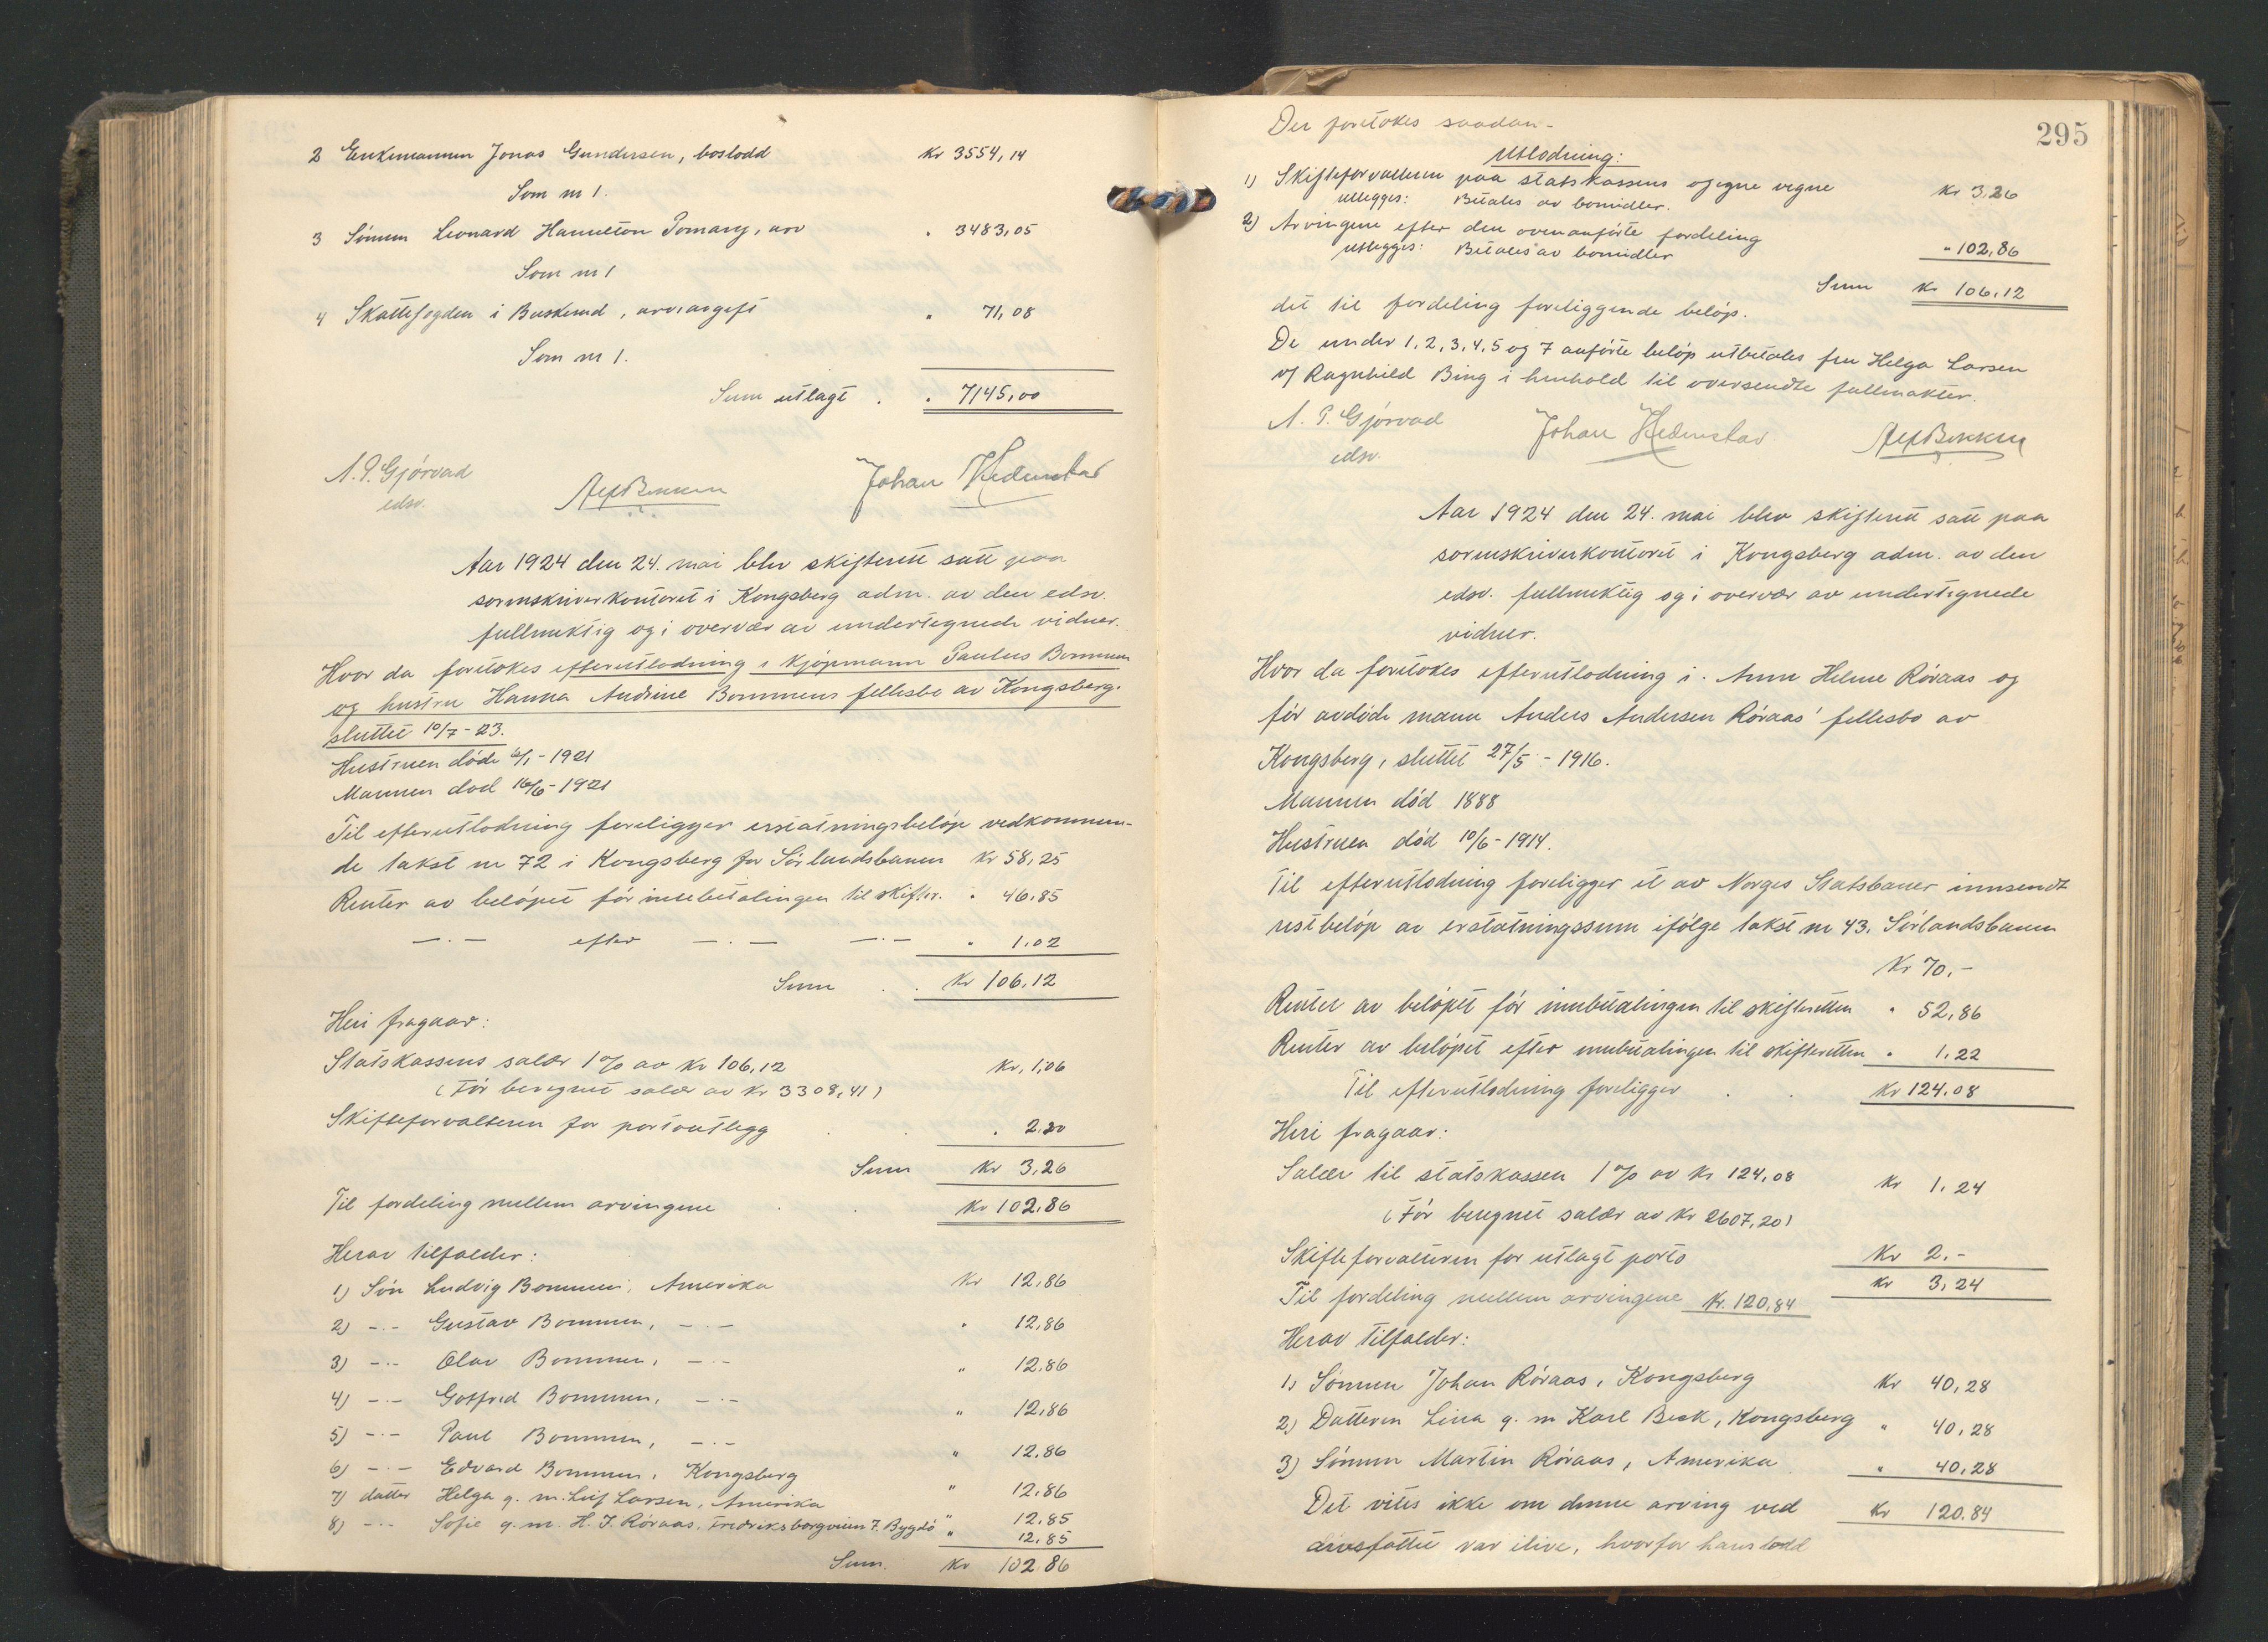 2 Enkemannen Jonas Gundersen, boslodd Kr 3554,14
Som nr 1.
3 Sönnen Leonard Hamilton Tomany, arv " 3483,05
Som nr 1
4 Skattefogden i Buskerud, arveavgift " 71,08
Som nr 1.
Sum utlagt . " 7145,00
A. P. Gjörvad
edsv.
Johan Hedenstad
Aar 1924 den 24. mai blev skifterett satt paa
sorenskriverkontoret i Kongsberg adm. av den edsv.
fullmektig og i overvær av undertegnede vidner.
Hvor da foretokes efterutlodning i kjöpmann Paulus Bommen
og hustru Hanna Andrine Bommens fellesbo av Kongsberg.
sluttet 10/7 - 23.
Hustruen döde /1 - 1921
Mannen död 16/6 - 1921
Til efterutlodning foreligger erstatningsbelöp vedkommen-
de takst nr 72 i Kongsberg for Sörlandsbanen Kr 58,25
Renter av belöpet för innbetalingen til skifter. " 46,85
— . — efter — . — — . — " 1,02
Sum . . Kr 106,12
Heri fragaar:
Statskassens salær 1 % av kr 106,12 Kr. 1,06
(För beregnet salær av kr 3308,41)
Skifteforvalteren for portoutlegg . . " 2,20
Sum Kr 3,26
Til fordeling mellem arvingene . . Kr 102,86
Herav tilfalder:
1) Sön Ludvig Bommen, Amerika Kr 12,86
2) - . - Gustav Bommen, - . - " 12,86
3) - . - Olav Bommen, - . - " 12,86
4) - . - Gotfred Bommen, - . - " 12,86
5) - . - Paul Bommen, - . - " 12,86
6) - . - Edvard Bommen, Kongsberg " 12,86
7) datter Helga g. m. Leif Larsen, Amerika " 12,85
8) - . - Sofie g. m. H. J. Röraas, Fredriksborgveien 7. Bygdö " 12,85
Sum. Kr 102,86
295
Der foretokes saadan -
Utlodning:
1) Skifteforvalteren paa statskassens og egne vegne Kr 3,26
utlegges: Betales av bomidler.
2) Arvingene efter den ovenanförte fordeling
utlegges: Betales av bomidler " 102,86
Sum Kr 106,12
det til fordeling foreliggende belöp.
De under 1, 2, 3, 4, 5 og 7 anförte belöp utbetales fru Helga Larsen
v/ Ragnhild Bing i henhold til oversendte fullmakter.
A. P. Gjörvad
edsv.
Johan Hedenstad
Aar 1924 den 24. mai blev skifterett satt paa
sorenskriverkontoret i Kongsberg adm. av den
edsv. fullmektig og i overvær av undertegnede
vidner.
Hvor da foretokes efterutlodning i Anne Helene Röraas og
för avdöde mann Anders Andersen Röraas' fellesbo av
Kongsberg, sluttet 27/5 - 1916.
Mannen död 1888
Hustruen död 10/6 - 1914.
Til efterutlodning foreligger et av Norges Statsbaner innsendt
restbelöp av erstatningssum ifölge takst nr 43. Sörlandsbanen
Kr 70,-
Renter av belöpet för innbetalingen til skifteretten " 52,86
Renter av belöpet efter innbetalingen til skifteretten " 1,22
Til efterutlodning foreligger . . Kr 124,08
Heri fragaar:
Salær til statskassen 1 % av kr 124,08 Kr 1,24
(För beregnet salær av kr 2607,20)
Skifteforvalteren for utlagt porto Kr 2,-
Kr 3,24
Til fordeling mellem arvingene Kr. 120,84
Herav tilfalder:
1) Sönnen Johan Röraas, Kongsberg Kr 40,28
2) Datteren Lina g. m Karl Beck, Kongsberg " 40,28
3) Sönnen Martin Röraas, Amerika " 40,28
Det vites ikke om denne arving ved Kr 120,84
arvefallet var ilive, hvorfor hans lodd